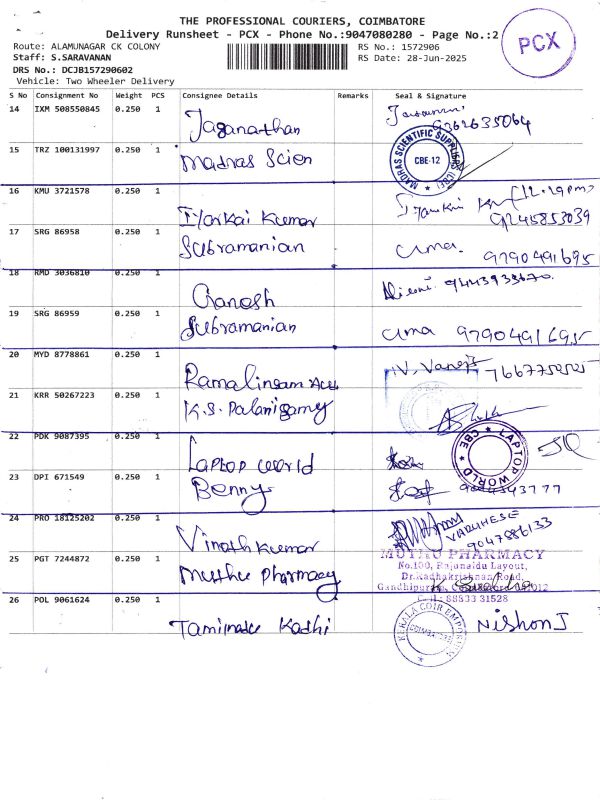 THE PROFESSIONAL COURIERS, COIMBATORE
Delivery Runsheet - PCX - Phone No.:9047080280 - Page No.:2
PCX
Route: ALAMUNAGAR CK COLONY
RS No.: 1572906
Staff: S.SARAVANAN
RS Date: 28-Jun-2025
DRS No.: DCJB157290602
Vehicle: Two Wheeler Delivery
S No Consignment No Weight PCS Consignee Details Remarks Seal & Signature
14 IXM 508550845 0.250 1
Jaganathan 9362635064
15 TRZ 100131997 0.250 1
Madras Scien
MADRAS SCIENTIFIC SUPPLIERS (CBE) CBE-12
16 KMU 3721578 0.250 1
Ilarkai Kumar 9245853039
17 SRG 86958 0.250 1
Subramanian uma. 9790491695
18 RMD 3036810 0.250 1
Ganesh 9443933670
19 SRG 86959 0.250 1
Subramanian uma 9790491695
20 MYD 8778861 0.250 1
Ramalingam
21 KRR 50267223 0.250 1
K.S. Palanisamy
22 PDK 9087395 0.250 1
Laptop world
LAPTOP WORLD CBE
23 DPI 671549 0.250 1
Benny
24 PRO 18125202 0.250 1
Vinoth Kumar VARUHESE
9047886133
25 PGT 7244872 0.250 1
Muthu Pharmacy
MUTHU PHARMACY
No.100, Rajanaidu Layout,
Dr.Radhakrishnan Road,
Gandhipuram, Coimbatore-641012
Cell: 88833 31528
26 POL 9061624 0.250 1
Tamilnadu Kadhi
KERALA COIR EMPORIUM COIMBATORE
Nishon J